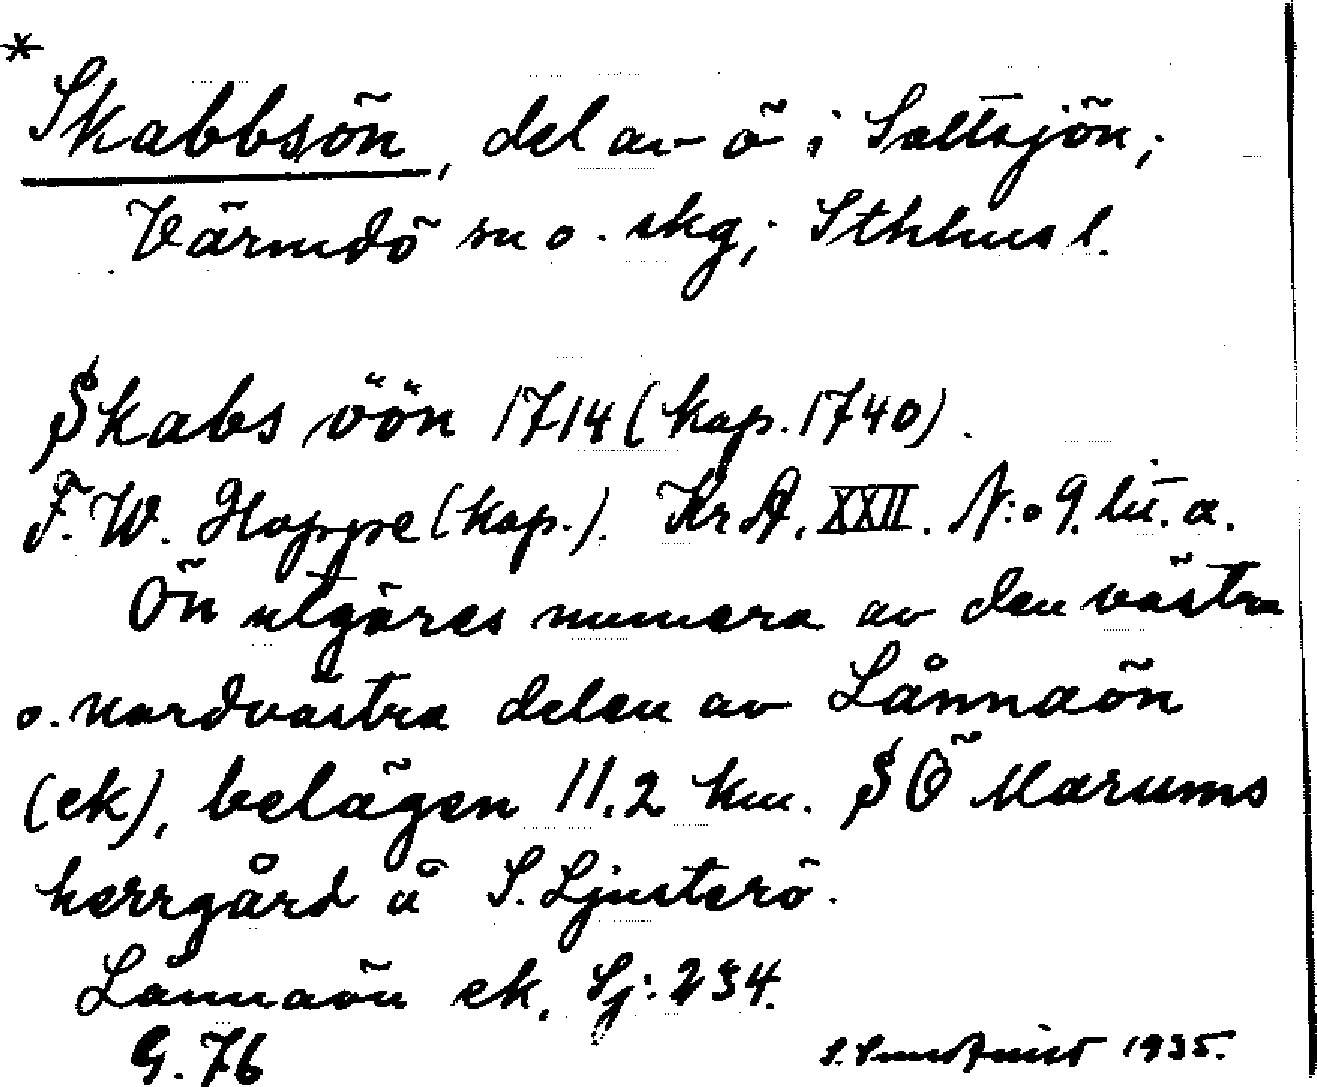 *
Skabbsön, del av ö i Saltsjön;
Värmdö sn o. skg; Sthlms l.
Skabs öön 1714 (kop. 1740).
F. W. Hoppe (kop.). Kr A. XXII. N:o 9. lit. a.
Ön utgöres numera av den västra
o. nordvästra delen av Lånnaön
(ek), belägen 11,2 km. SÖ Marums
herrgård å S. Ljusterö.
Lånnaön ek. Sj: 234.
G. 76
1935.